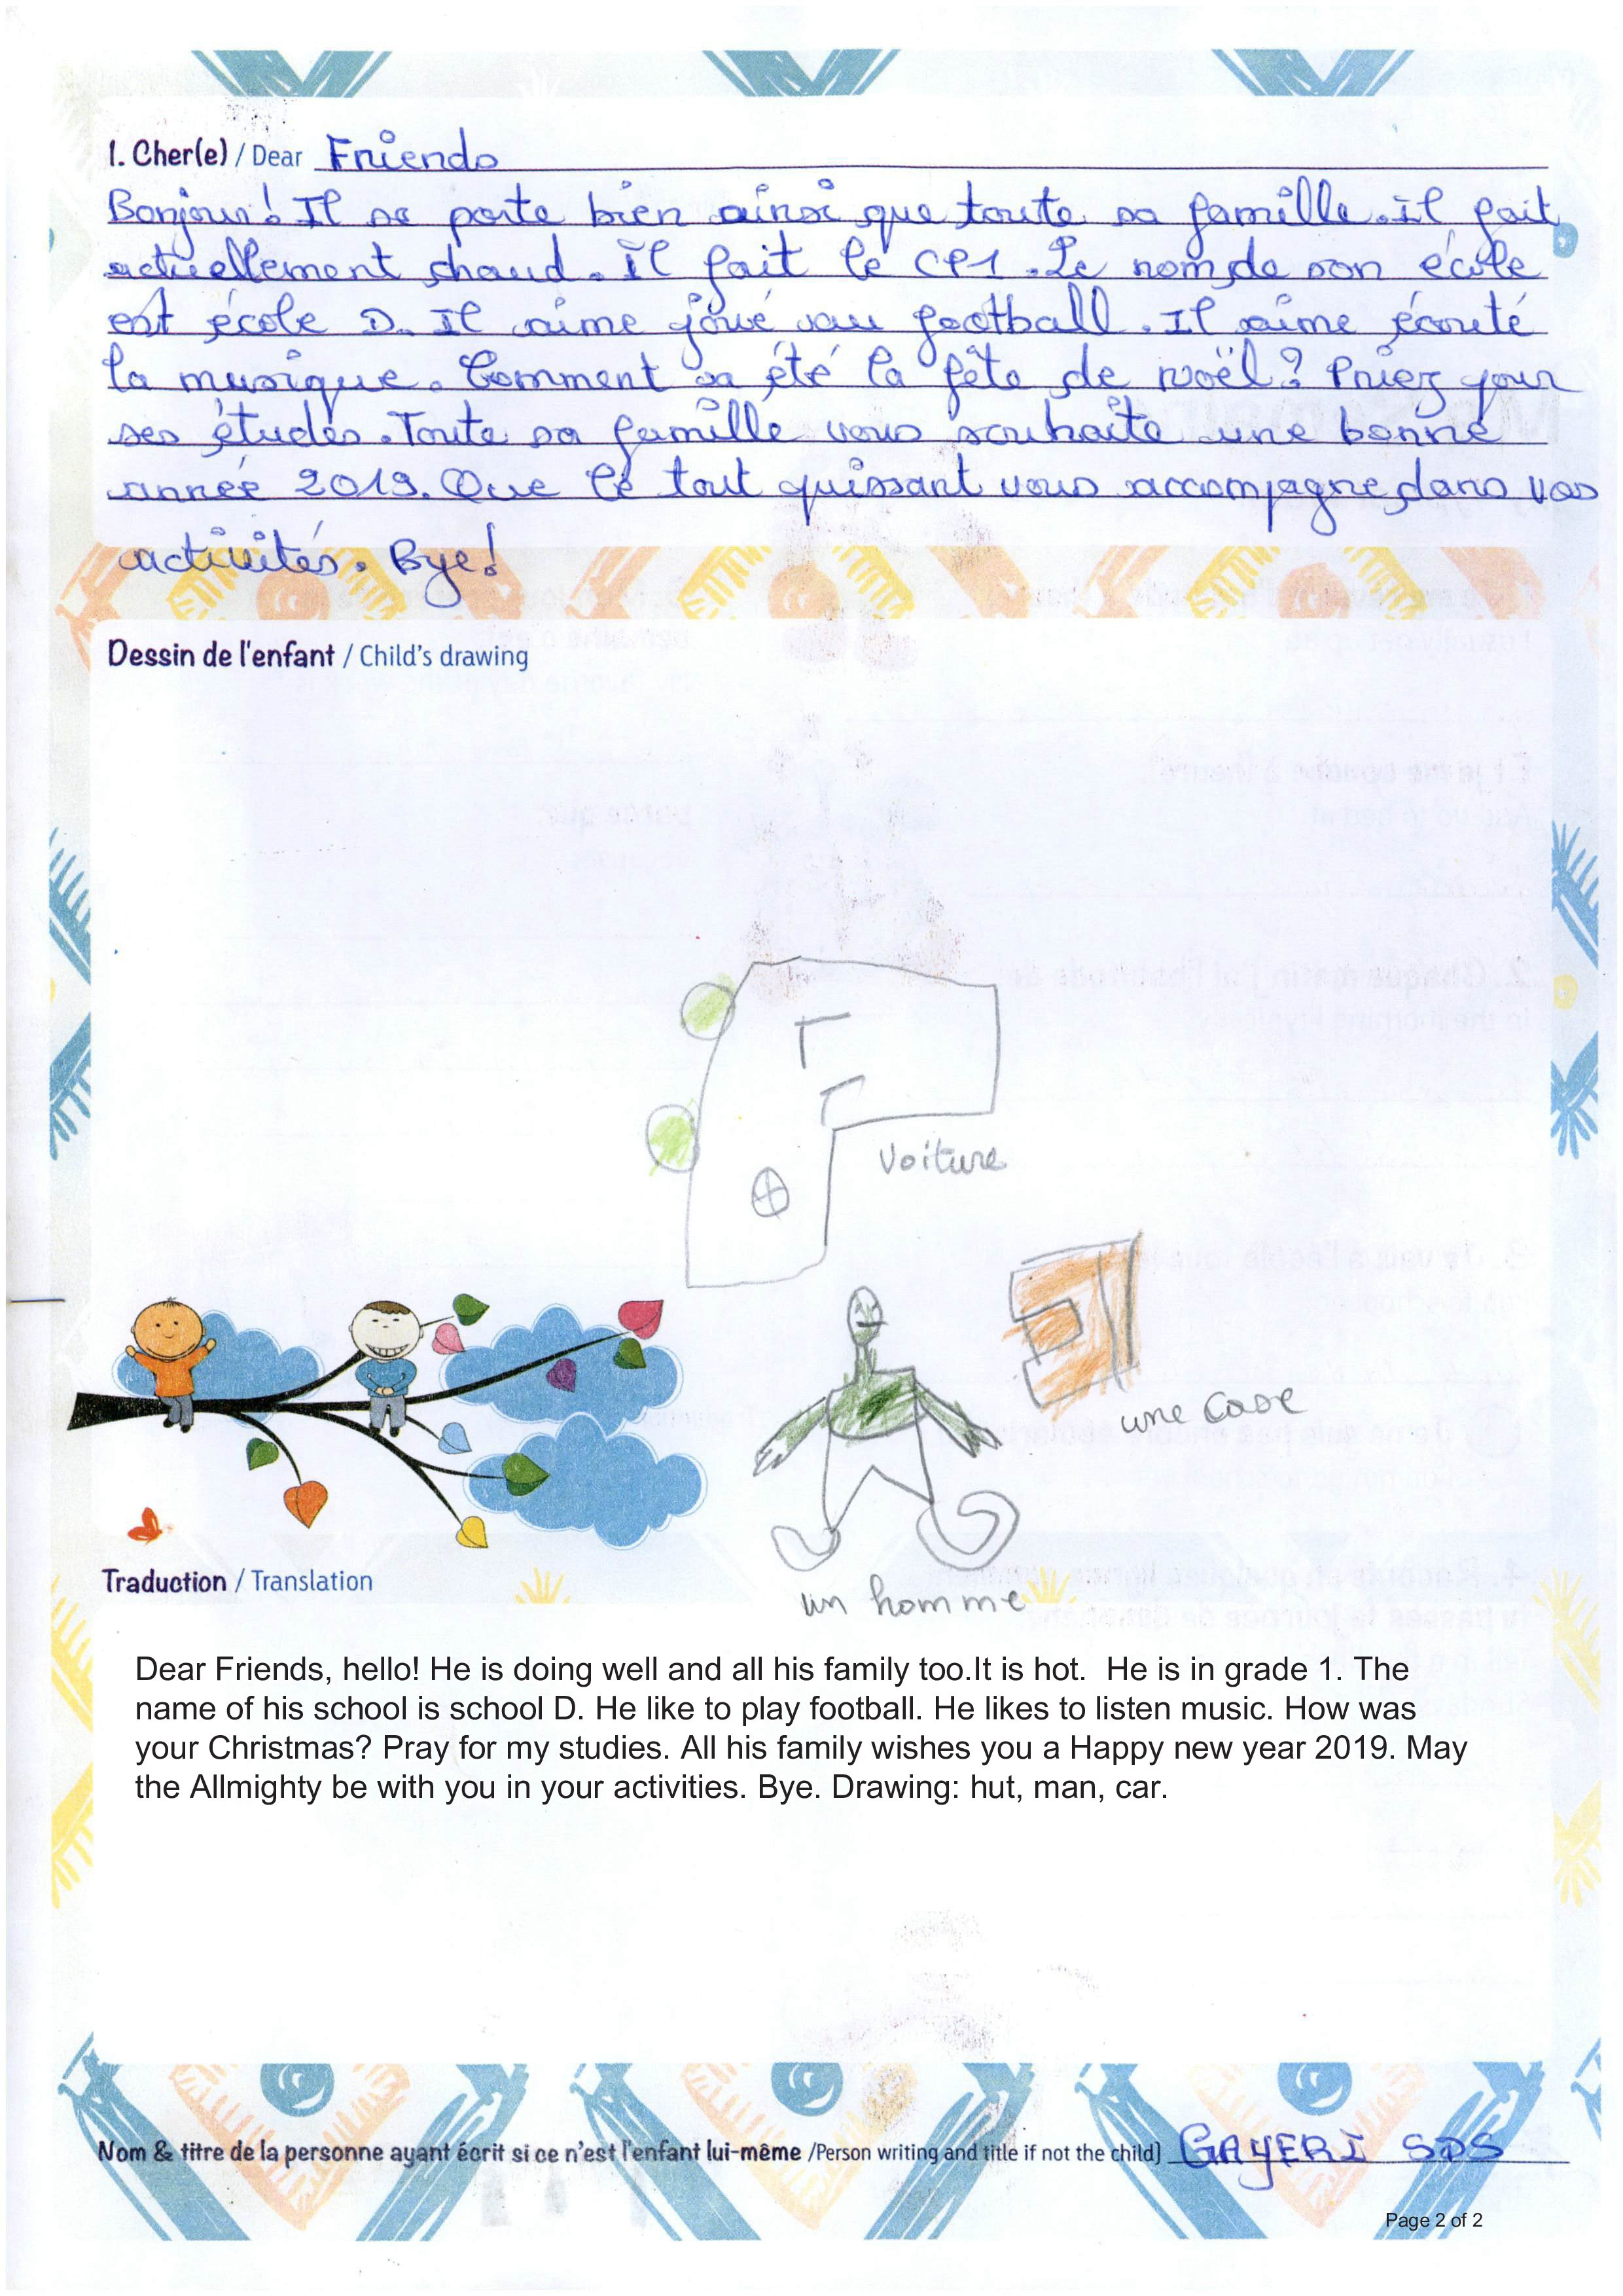 1. Cher(e) / Dear Friends
Bonjour! Il se porte bien ainsi que toute sa famille. il fait
actuellement chaud. il fait le CP1. Le nom de son école
est école D. Il aime joué au football. Il aime écouté
la musique. Comment sa été la fête de noël? Priez pour
ses études. Toute sa famille vous souhaite une bonne
année 2019. Que le tout puissant vous accompagne dans vos
activités. Bye!
Dessin de l'enfant / Child's drawing
Voiture
une case
un homme
Traduction / Translation
Dear Friends, hello! He is doing well and all his family too.It is hot.  He is in grade 1. The
name of his school is school D. He like to play football. He likes to listen music. How was
your Christmas? Pray for my studies. All his family wishes you a Happy new year 2019. May
the Allmighty be with you in your activities. Bye. Drawing: hut, man, car.
Nom & titre de la personne ayant écrit si ce n'est l'enfant lui-même /Person writing and title if not the child) GAYERI SDS
Page 2 of 2